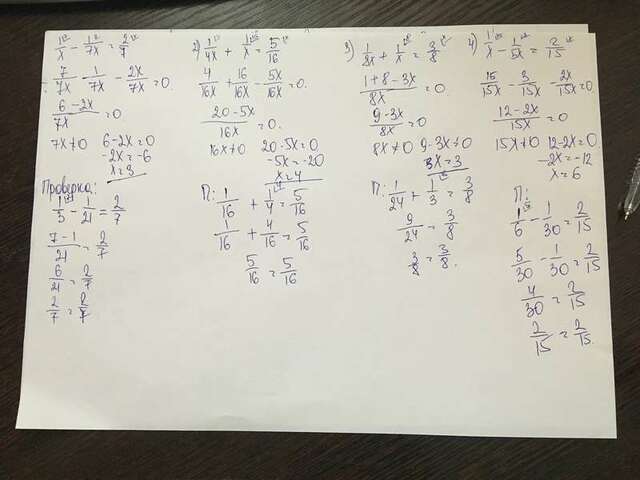 1/x - 1/7x = 2/7
7/7x - 1/7x - 2x/7x = 0.
6-2x/7x = 0.
7x≠0 6-2x=0
-2x=-6
x=3
Проверка:
1/3 - 1/21 = 2/7
7-1/21 = 2/7
6/21 = 2/7
2/7 = 2/7
2) 1/4x + 1/x = 5/16
4/16x + 16/16x - 5x/16x = 0.
20-5x/16x = 0.
16x≠0 20-5x=0
-5x=-20
x=4
П: 1/16 + 1/4 = 5/16
1/16 + 4/16 = 5/16
5/16 = 5/16
3) 1/8x + 1/x = 3/8
1+8-3x/8x = 0.
9-3x/8x = 0
8x≠0 9-3x=0
3x=3
П: 1/24 + 1/3 = 3/8
9/24 = 3/8
3/8 = 3/8.
4) 1/x - 1/5x = 2/15
15/15x - 3/15x - 2x/15x = 0.
12-2x/15x = 0
15x≠0 12-2x=0
-2x=-12
x=6
П:
1/6 - 1/30 = 2/15
5/30 - 1/30 = 2/15
4/30 = 2/15
2/15 = 2/15